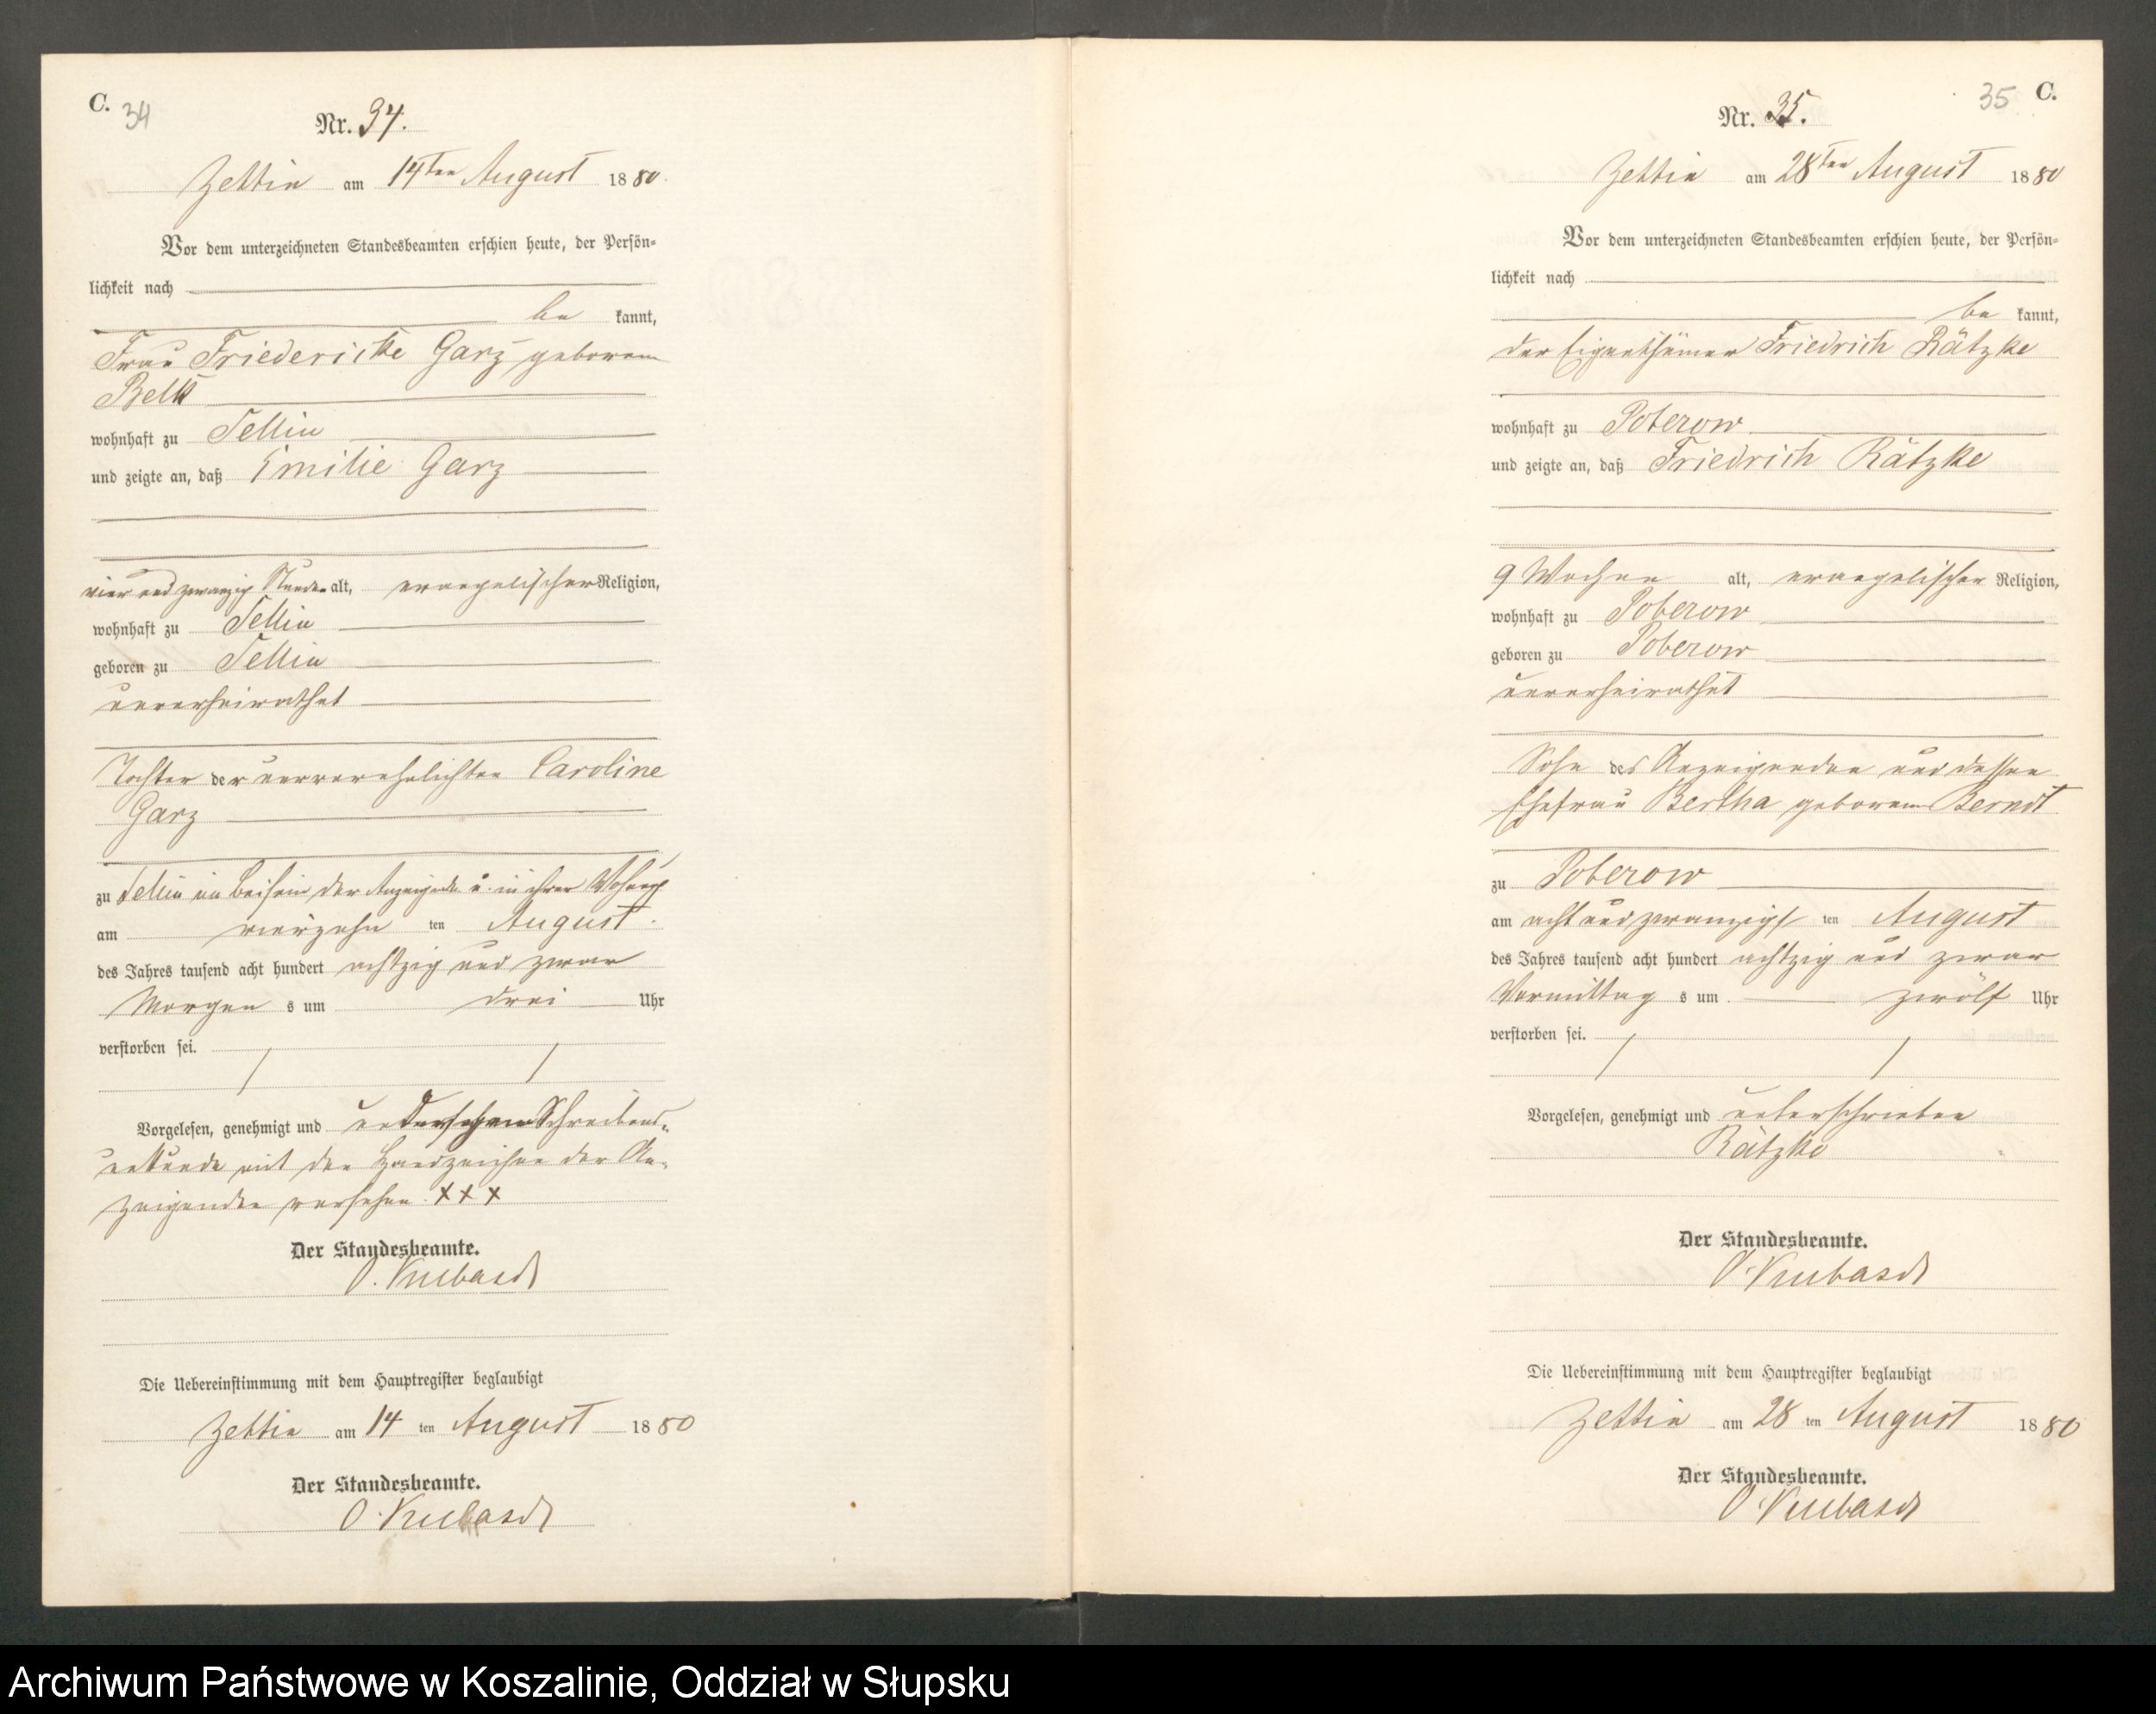 C.
34
Nr. 34.
Zettin am 14ten August 1880.
Vor dem unterzeichneten Standesbeamten erschien heute, der Persön=
lichkeit nach
be kannt,
Frau Friedericke Garz geborene
wohnhaft zu Tellin
und zeigte an, daß Emilie Garz
vier und zwanzig Stunden alt, evangelischer Religion,
wohnhaft zu Tellin
geboren zu Tellin
unverheirathet
Tochter der unverehelichten Caroline
Garz
zu Tellin im Beisein der Anzeigende u. in ihrer Wohnung
am vierzehn ten August
des Jahres tausend acht hundert achtzig und zwar
Morgen s um drei Uhr
verstorben sei.
Vorgelesen, genehmigt und Schreibens=
unkunde mit den Handzeichen der An=
zeigenden versehen. XXX
Der Standesbeamte.
O. Kubasch
Die Uebereinstimmung mit dem Hauptregister beglaubigt
Zettin am 14 ten August 1880
Der Standesbeamte.
O. Kubasch
35 C.
Nr. 35.
Zettin am 28ten August 1880
Vor dem unterzeichneten Standesbeamten erschien heute, der Persön=
lichkeit nach
be kannt,
der Eigenthümer Friedrich Rätzke
wohnhaft zu Poberow
und zeigte an, daß Friedrich Rätzke
9 Wochen alt, evangelischer Religion,
wohnhaft zu Poberow
geboren zu Poberow
unverheirathet
Sohn des Anzeigenden und dessen
Ehefrau Bertha geborene Berndt
zu Poberow
am acht und zwanzigs ten August
des Jahres tausend acht hundert achtzig und zwar
Vormittag s um zwölf Uhr
verstorben sei.
Vorgelesen, genehmigt und unterschrieben
Rätzke
Der Standesbeamte.
O. Kubasch
Die Uebereinstimmung mit dem Hauptregister beglaubigt
Zettin am 28 ten August 1880
Der Standesbeamte.
O. Kubasch
Archiwum Państwowe w Koszalinie, Oddział w Słupsku